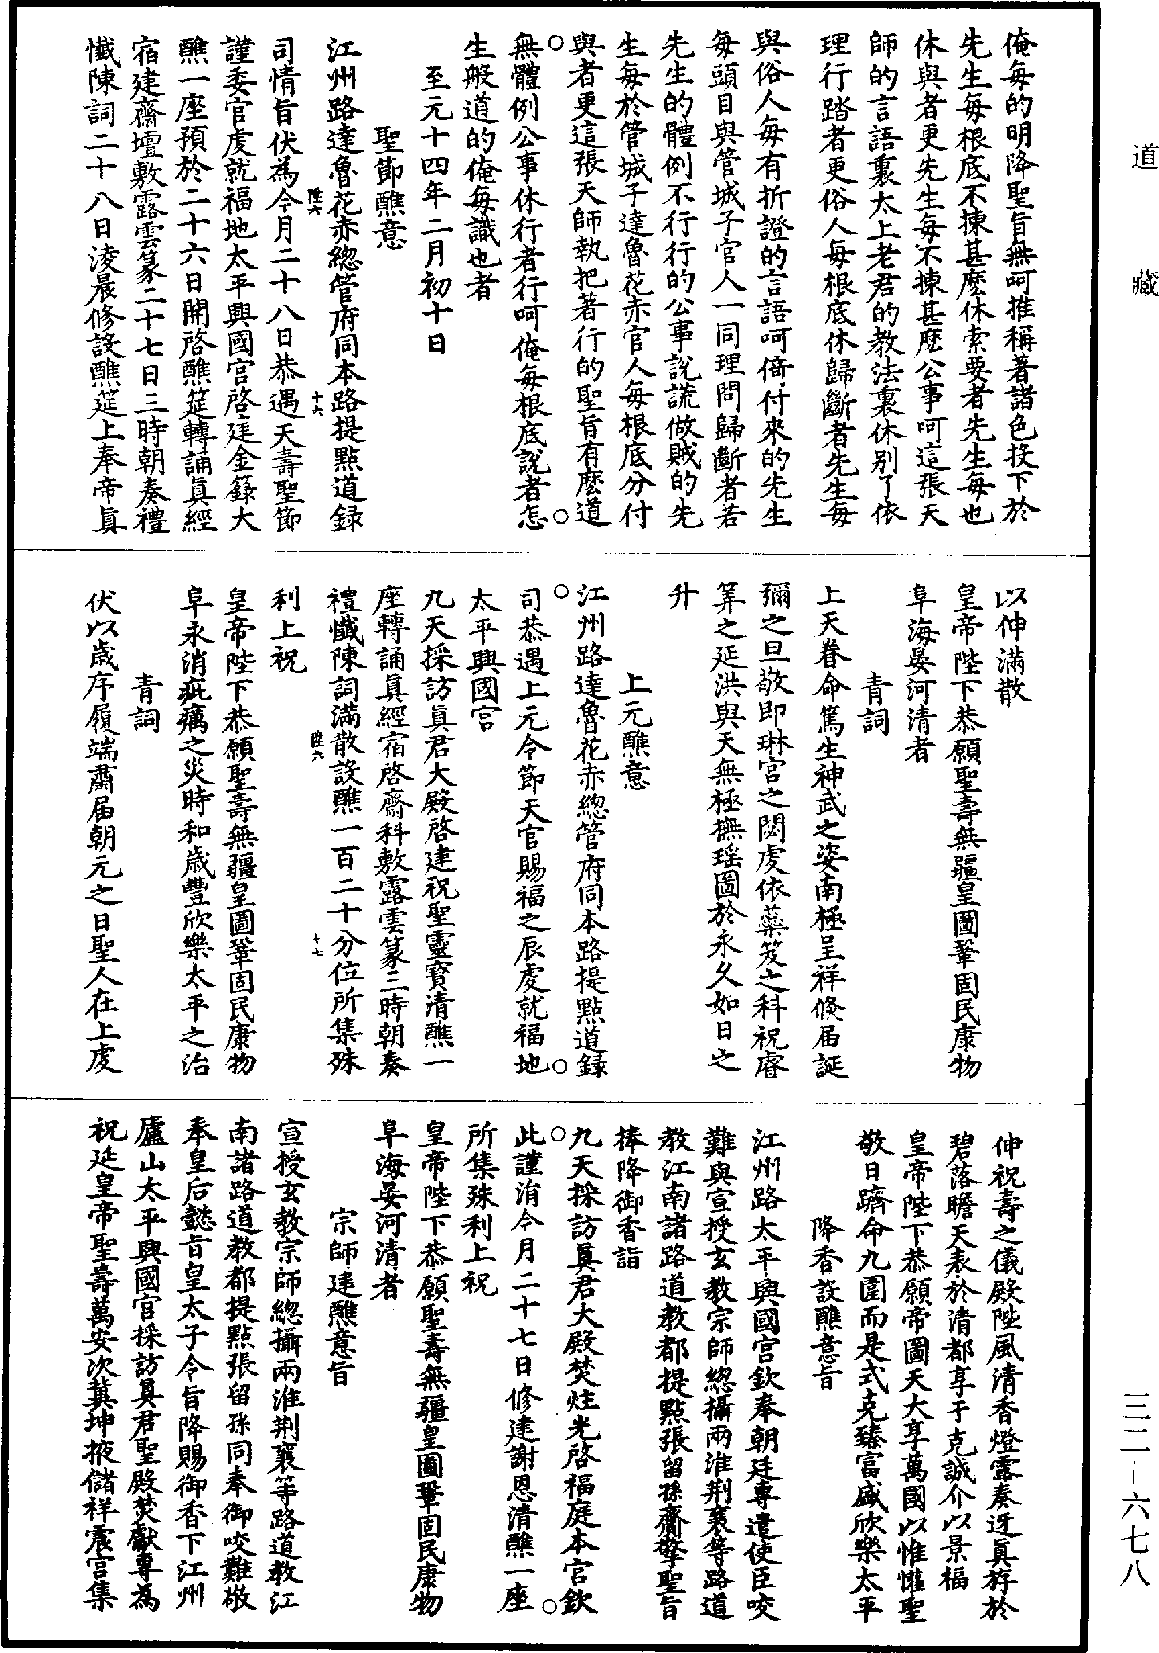 道藏
俺每的明降聖旨無呵推稱著諸色投下於
先生每根底不揀甚麽休索要者先生每也
休與者更先生每不揀甚麽公事呵這張天
師的言語裏太上老君的教法裏休别了依
理行踏者更俗人每根底休歸斷者先生每
與俗人每有折證的言語呵倚付來的先生
每頭目與管城子官人一同理問歸斷者若
先生的體例不行行的公事說謊做賊的先
生每於管城子達魯花赤官人每根底分付
與者更這張天師執把著行的聖旨有麽道
無體例公事休行者行呵俺每根底說者怎
生般道的俺每識也者
至元十四年二月初十日
聖節醮意
江州路達魯花赤總管府同本路提點道録
司情旨伏為今月二十八日恭遇天壽聖節
謹委官虔就福地太平興國宫啓建金籙大
醮一座預於二十六日開啓醮筵轉誦真經
宿建齋壇敷露雲篆二十七日三時朝奏禮
懺陳詞二十八日淩晨修設醮筵上奉帝真
以伸滿散
皇帝陛下恭願聖壽無疆皇圖鞏固民康物
阜海晏河清者
青詞
上天眷命篤生神武之姿南極呈祥倏届誕
彌之旦敬即琳宫之閟虔依蘂笈之科祝睿
筭之延洪與天無極撫瑶圖於永久如日之
升
上元醮意
江州路達魯花赤總管府同本路提點道録
司恭遇上元令節天官賜福之辰虔就福地
太平興國宫
九天採訪真君大殿啓建祝聖靈寶清醮一
座轉誦真經宿啓齋科敷露雲篆三時朝奏
禮懺陳詞滿散設醮一百二十分位所集殊
利上祝
皇帝陛下恭願聖壽無疆皇圖鞏固民康物
阜永消疵癘之災時和歲豐欣樂太平之治
青詞
伏以歲序履端肅届朝元之日聖人在上虔
伸祝壽之儀殿陛風清香燈露奏迓真斿於
碧落瞻天表於清都享于克誠介以景福
皇帝陛下恭願帝圖天大享萬國以惟懽聖
敬日躋命九圍而是式克臻富盛欣樂太平
降香設醮意旨
江州路太平興國宫欽奉朝廷專遣使臣咬
難與宣授玄教宗師總攝兩淮荆襄等路道
教江南諸路道教都提點張留孫齎擎聖旨
捧降御香詣
九天採訪真君大殿焚炷光啓福庭本宫欽
此謹涓今月二十七日修建謝恩清醮一座
所集殊利上祝
皇帝陛下恭願聖壽無疆皇圖鞏固民康物
阜海晏河清者
宗師建醮意旨
宣授玄教宗師總攝兩淮荆襄等路道教江
南諸路道教都提點張留孫同奉御咬難敬
奉皇后懿旨皇太子令旨降賜御香下江州
廬山太平興國宫採訪真君聖殿焚獻專為
祝延皇帝聖壽萬安次冀坤掖儲祥震宫集
陸六
十六
陸六
十七
三二－六七八